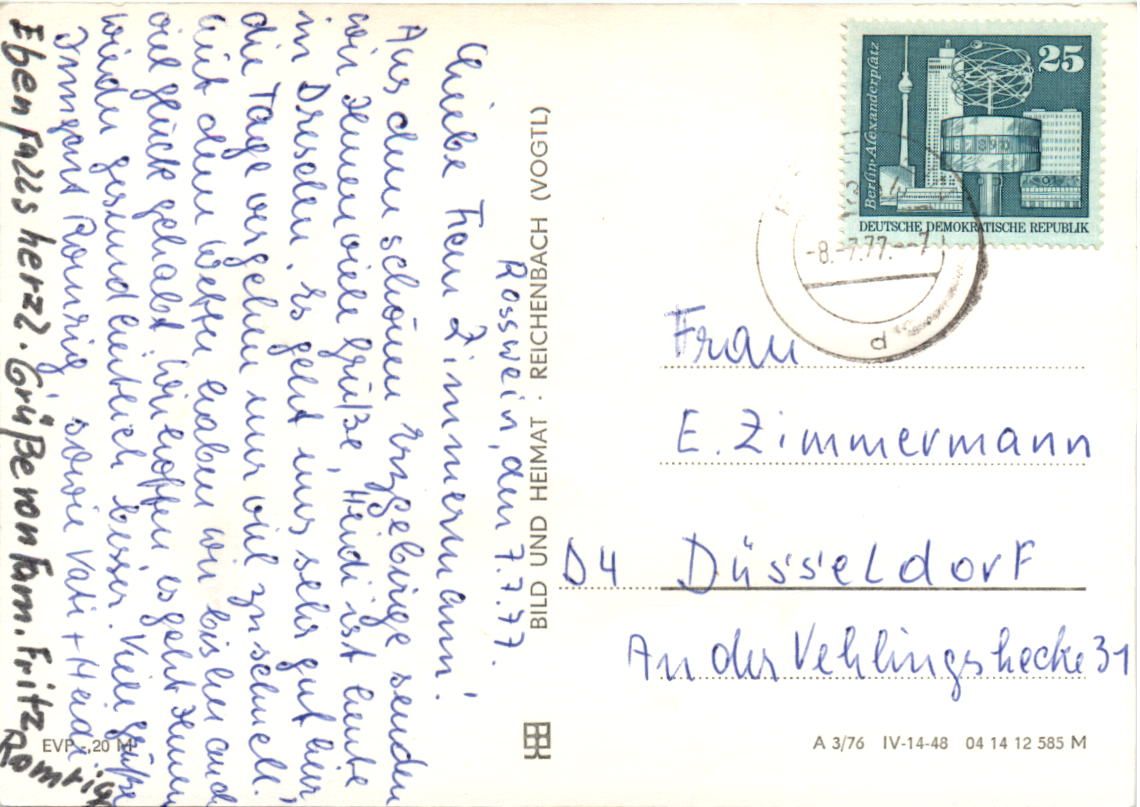 Rosswein, den 7.7.77.
Liebe Frau Zimmermann!
Aus dem schönen Erzgebirge senden
wir Ihnen viele Grüße, Heidi ist heute
in Dresden. Es geht uns sehr gut hier
die Tage vergehen nur viel zu schnell.
Mit dem Wetter haben wir bisher auch
viel Glück gehabt. Wir hoffen es geht Ihnen
wieder gesundheitlich besser. Viele Grüße
Irmgard Romrig, sowie Vati + Heidi
Ebenfalls herzl. Grüße von Fam. Fritz
Romrig
EVP -,20 M
BILD UND HEIMAT · REICHENBACH (VOGTL)
25
Berlin-Alexanderplatz
DEUTSCHE DEMOKRATISCHE REPUBLIK
-8.-7.77.--7
d
Frau
E. Zimmermann
D4 Düsseldorf
An der Vehlingshecke 31
A 3/76 IV-14-48 04 14 12 585 M